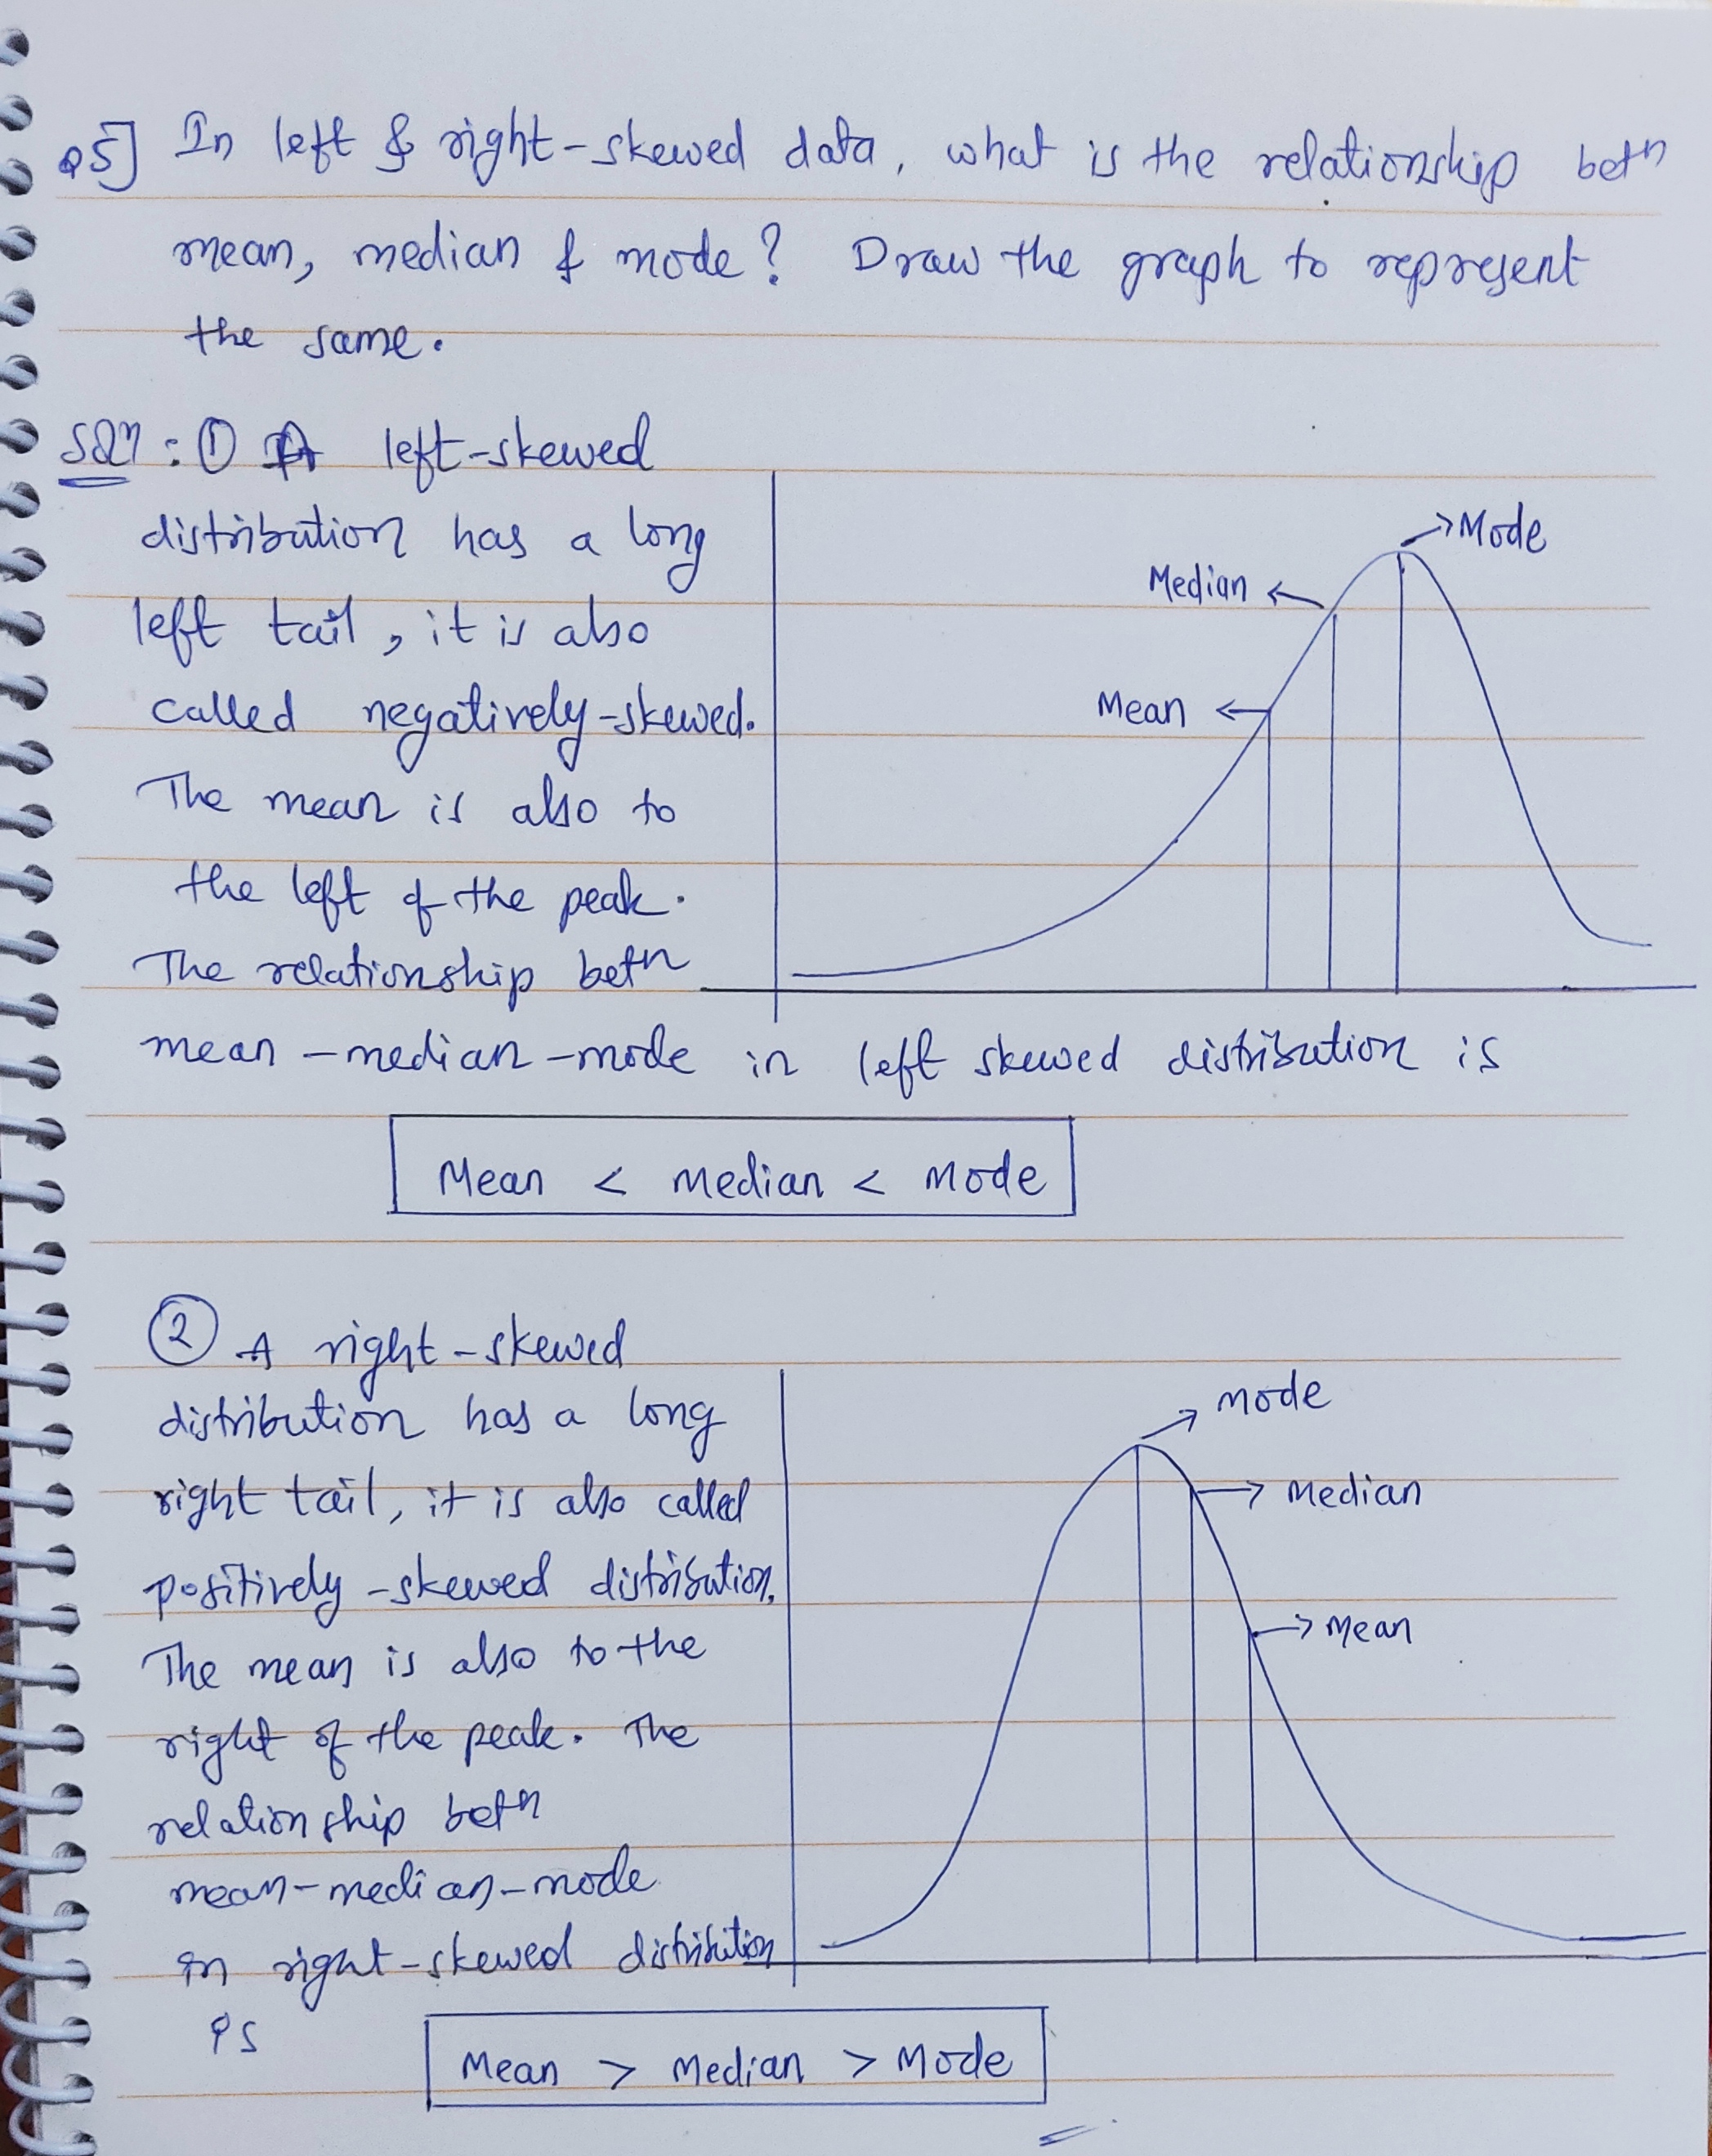 Q5] In left & right-skewed data, what is the relationship betn
mean, median & mode? Draw the graph to represent
the same.
Soln: ① A left-skewed
distribution has a long
left tail, it is also
called negatively-skewed.
The mean is also to
the left of the peak.
The relationship betn
mean-median-mode in left skewed distribution is
Mode
Median
Mean
Mean < Median < Mode
② A right-skewed
distribution has a long
right tail, it is also called
positively-skewed distribution.
The mean is also to the
right of the peak. The
relationship betn
mean-median-mode
in right-skewed distribution
is
Mode
Median
Mean
Mean > Median > Mode